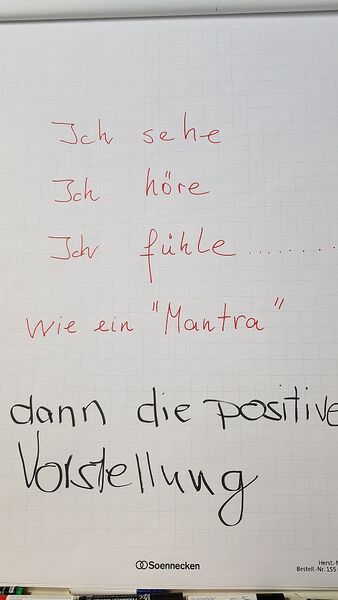 Ich sehe
Ich höre
Ich fühle ........
wie ein "Mantra"
dann die positive
Vorstellung
Soennecken
Herst.-N
Bestell.-Nr. 155